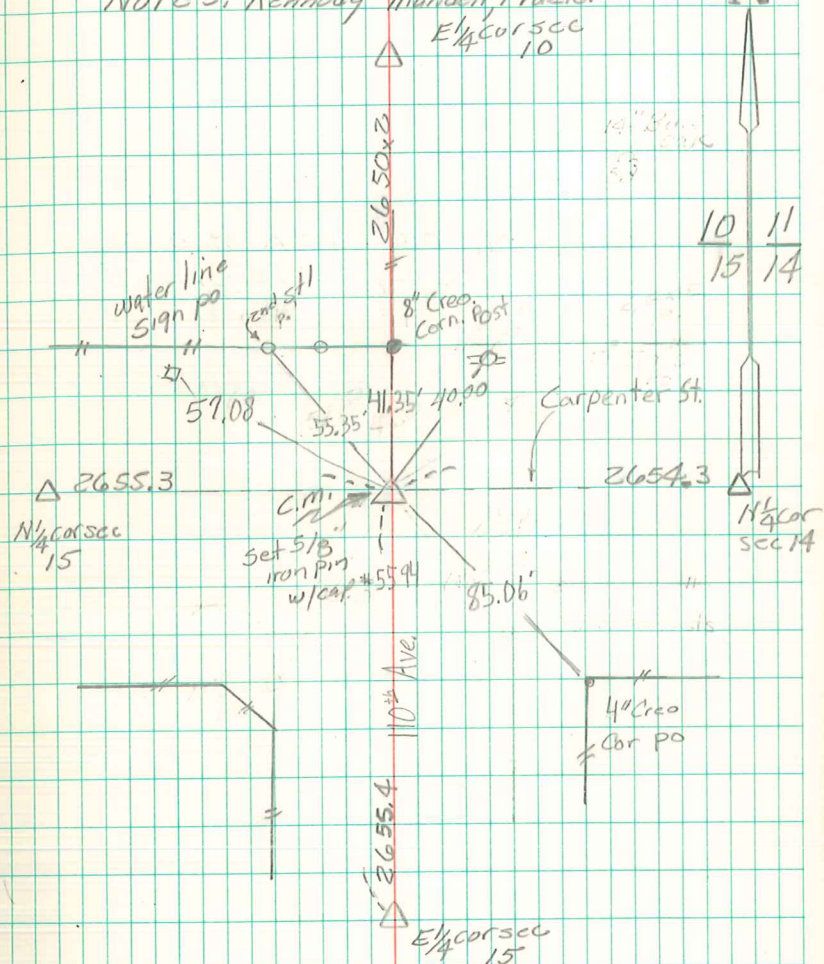 Note S. Kennedy
E1/4 cor sec
10
2650.2
10 | 11
15 | 14
water line
sign po
2nd stl
po.
8" Creo.
Corn. Post
57.08
55.35'
41.35'
40.00
Carpenter St.
2655.3
2654.3
N1/4 cor sec
15
N1/4 cor
sec 14
C.M.
set 5/8"
iron pin
w/cap #5594
85.06'
110th Ave.
4" Creo
Cor po
2655.4
E1/4 cor sec
15